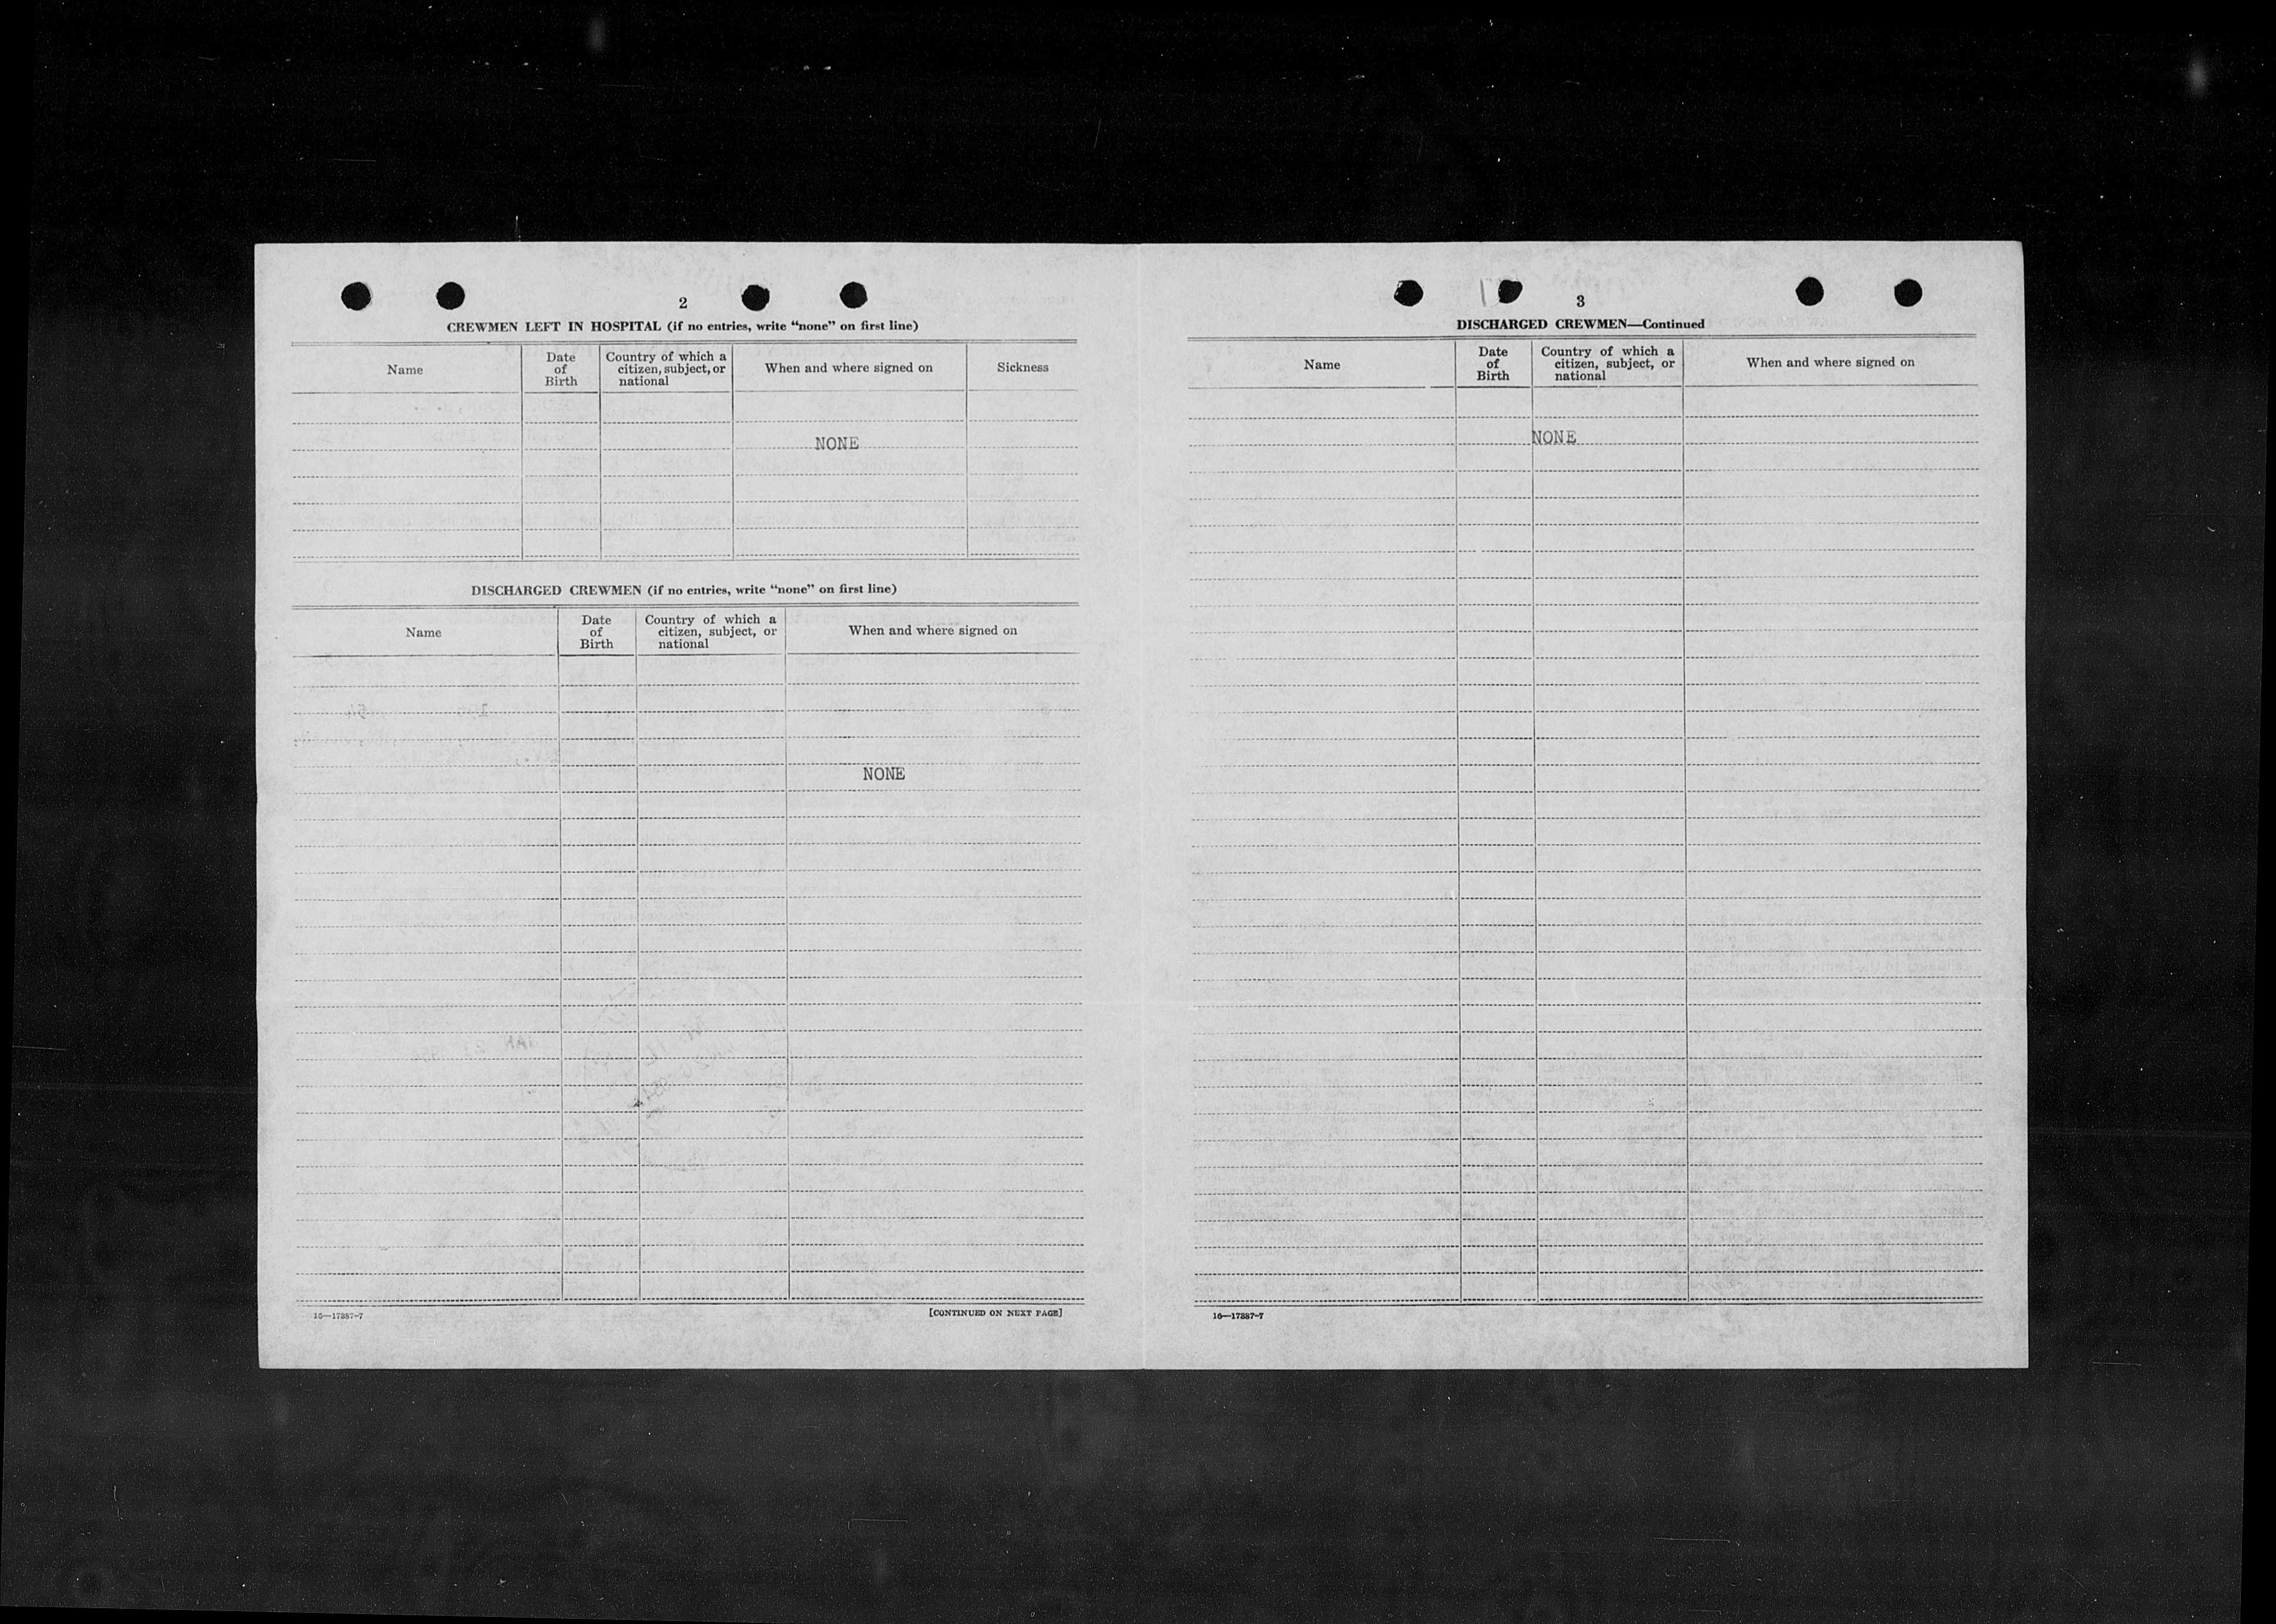 2
CREWMEN LEFT IN HOSPITAL (if no entries, write “none” on first line)
Name
Date
of
Birth
Country of which a
citizen, subject, or
national
When and where signed on
Sickness
NONE
DISCHARGED CREWMEN (if no entries, write “none” on first line)
Name
Date
of
Birth
Country of which a
citizen, subject, or
national
When and where signed on
NONE
16—17387-7
[CONTINUED ON NEXT PAGE]
3
DISCHARGED CREWMEN—Continued
Name
Date
of
Birth
Country of which a
citizen, subject, or
national
When and where signed on
NONE
16—17387-7